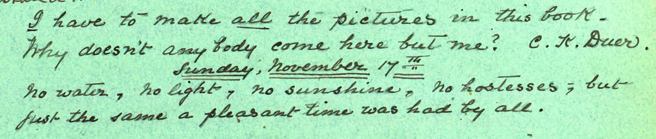 I have to make all the pictures in this book.
Why doesn't any body come here but me? C. K. Duer.
Sunday, November 17th
No water, no light, no sunshine, no hostesses, but
just the same a pleasant time was had by all.